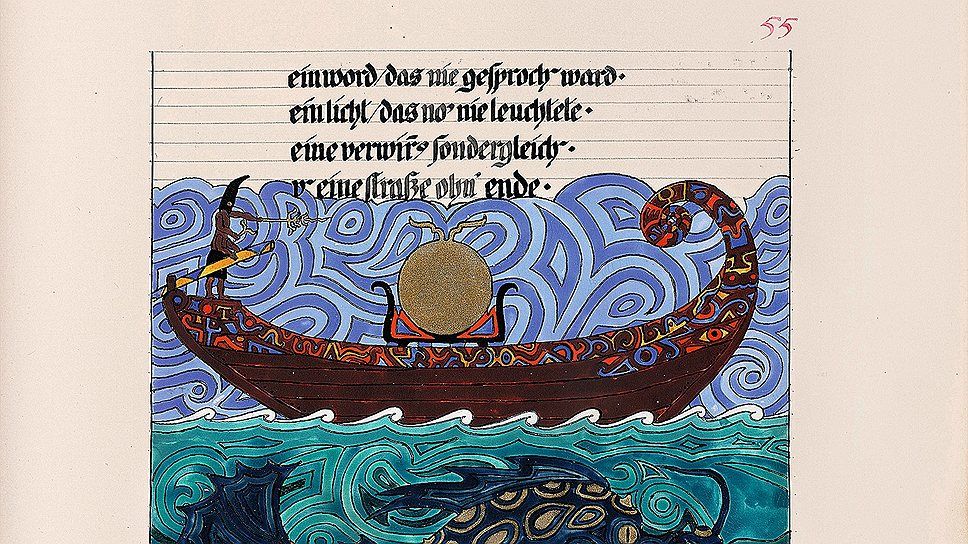 55
ein word/das nie gesproch ward·
ein licht/das no' nie leuchtete·
eine verwir̄g sondergleich·
u eine straße ohn' ende·